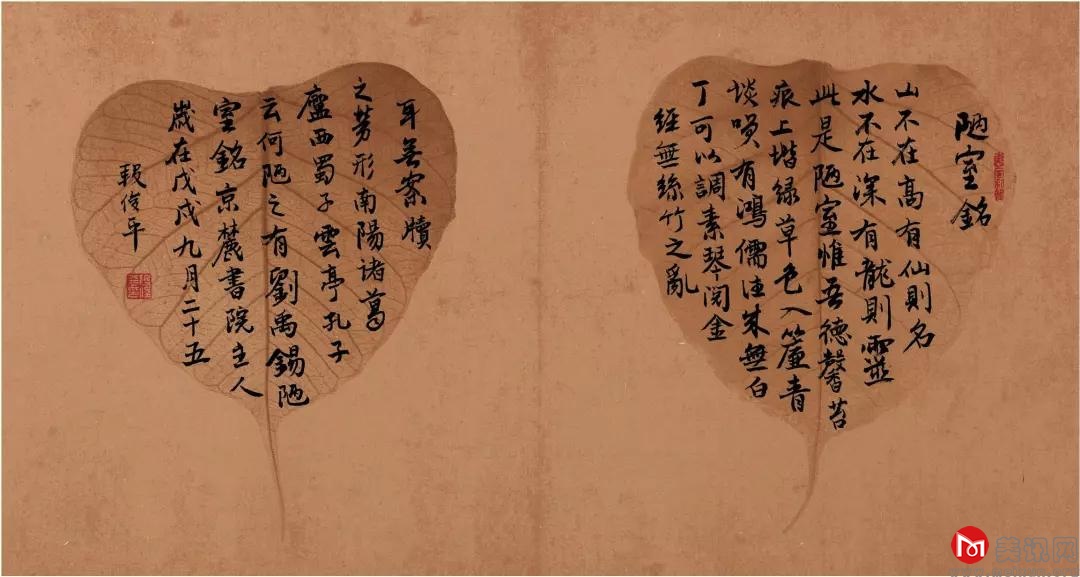 陋室銘
山不在高有仙則名
水不在深有龍則靈
此是陋室惟吾德馨苔
痕上堦绿草色入簾青
談咲有鴻儒往来無白
丁可以調素琴閱金
經無絲竹之亂
耳無案牘
之勞形南陽诸葛
廬西蜀子雲亭孔子
云何陋之有劉禹錫陋
室銘京麓書院主人
歲在戊戌九月二十五
段俊平
美讯网